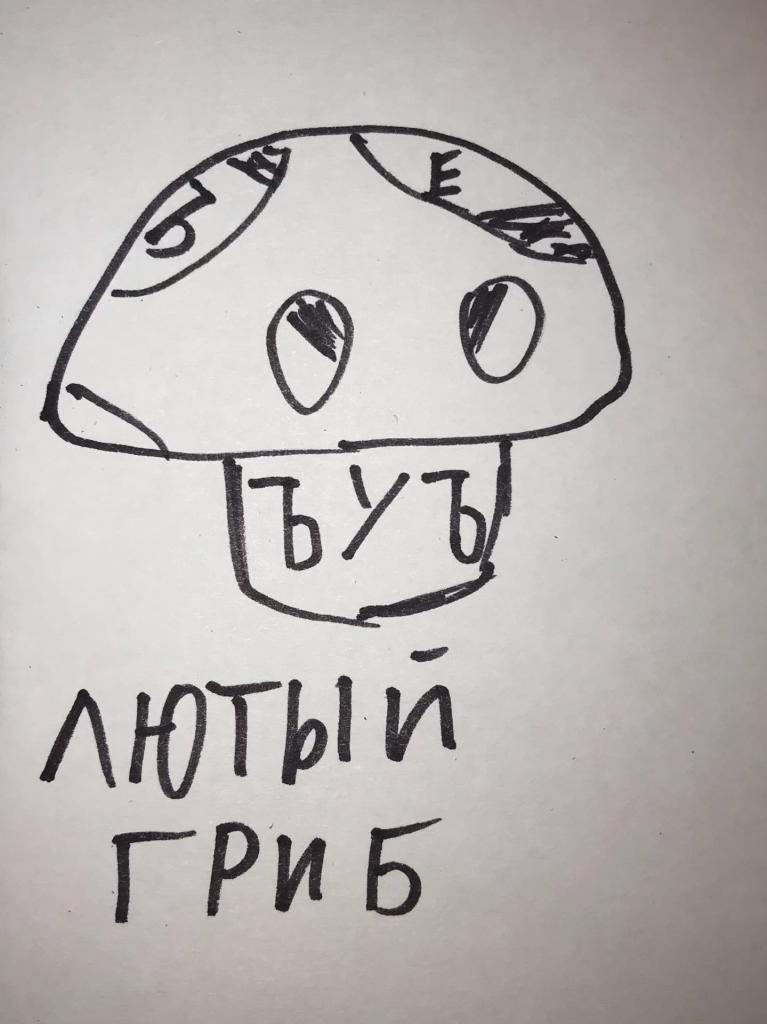 Ъ Е
ЪУЪ
ЛЮТЫЙ
ГРИБ